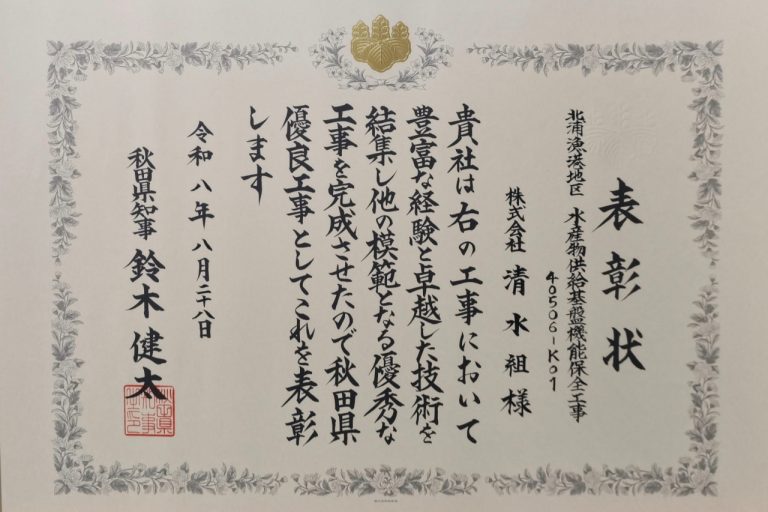 表彰状
北浦漁港地区 水産物供給基盤機能保全工事
40506-K01
株式会社 清水組 様
貴社は右の工事において
豊富な経験と卓越した技術を
結集し他の模範となる優秀な
工事を完成させたので秋田県
優良工事としてこれを表彰
します
令和八年八月二十八日
秋田県知事 鈴木健太